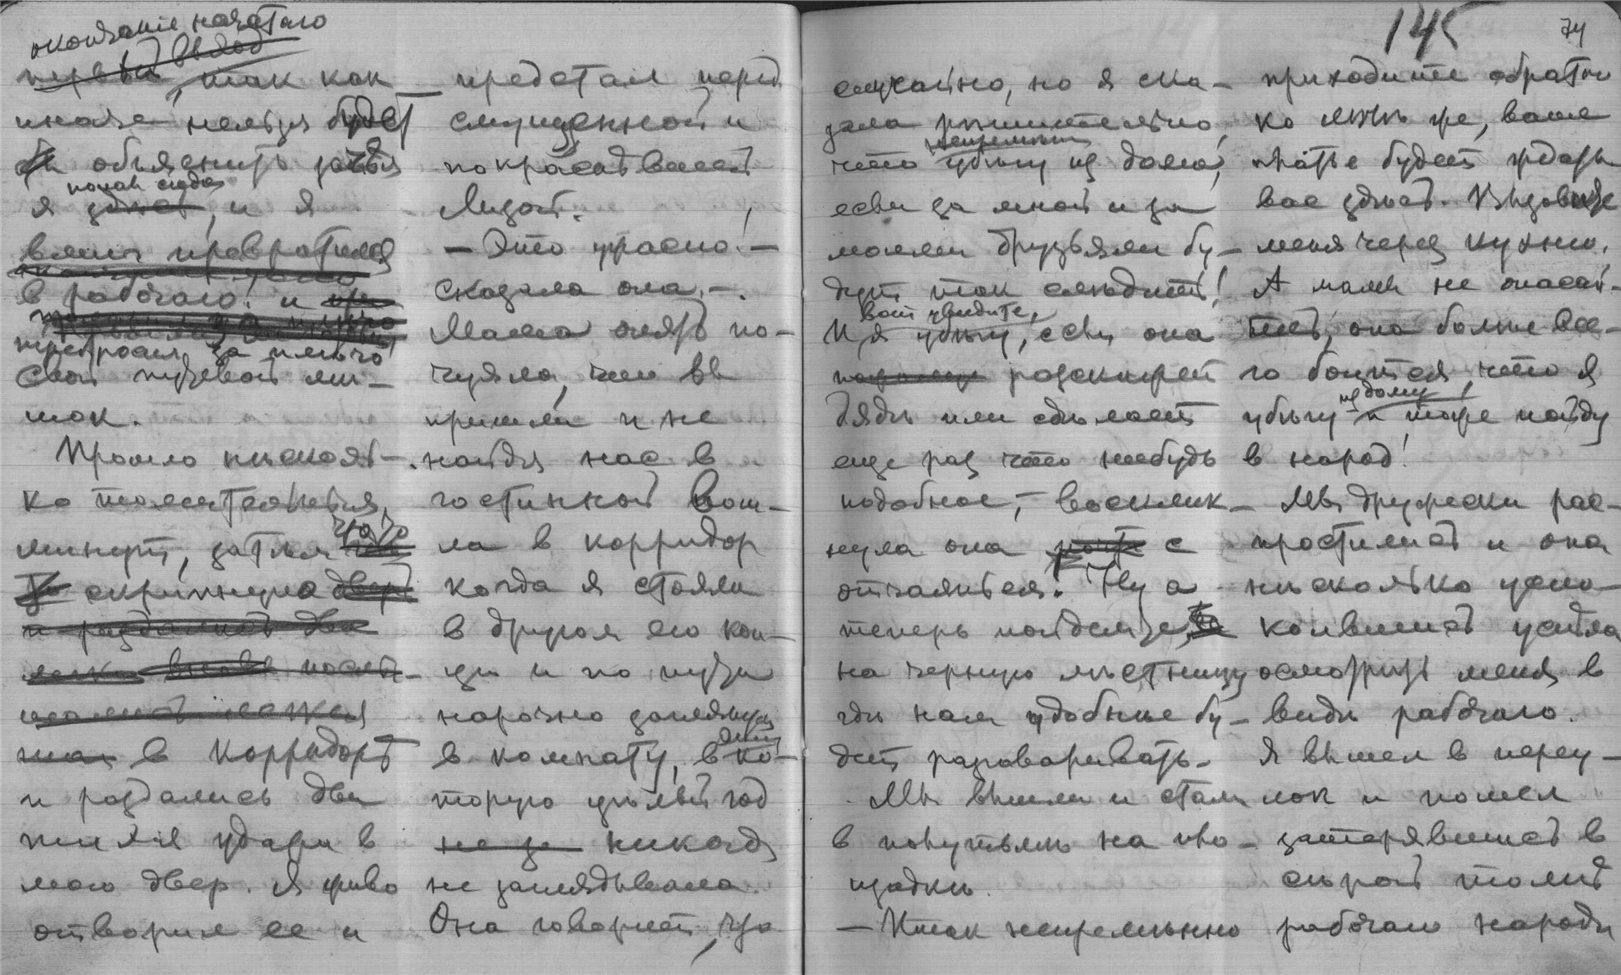 окончание начатаго
первый выход
так как
иначе нельзя будет
объяснить зачем
я попал сюда, и я
вмиг превратился
в рабочаго и
перебросил за плечо
свой мешок.
Прошло несколько
томительных
минут, затем
скрипнула дверь
в корридоре
и раздались два
тихие удара в
мою дверь. Я живо
отворил ее и
предстал перед
смущенной и
покрасневшей
Лизой.
— Это ужасно! —
сказала она, —
Мама опять по-
чуяла, что вы
пришли и не
найдя нас в
гостинной вош-
ла в корридор
когда я стояла
в другом его кон-
це и
нарочно заглянула
в комнату, в ко-
торую целый год
никогда
не заглядывала.
Она говорит, что
145
74
случайно, но я ска-
зала решительно,
что непременно убегу из дома,
если за мной и за
моими друзьями бу-
дут так следить!
И я вот увидите, убегу, если она
разскажет
дяде или сделает
еще раз что нибудь
подобное, — восклик-
нула она с
отчаяньем. Ну а
теперь пойдемте
на черную лестницу
где нам удобнее бу-
дет разговаривать.
Мы вышли и стали
в полутьме на пло-
щадке.
— Итак непременно
приходите обратно
ко мне же, ваше
платье будет ждать
вас здесь. Вызовите
меня через кухню.
А мамы не опасай-
тесь, она больше все-
го боится что я
убегу из дому и тоже пойду
в народ!
Мы дружески рас-
простились и она
несколько успо-
коившись ушла
осмотрев меня в
виде рабочаго.
Я вышел в переу-
лок и пошел
затерявшись в
серой толпе
рабочаго народа